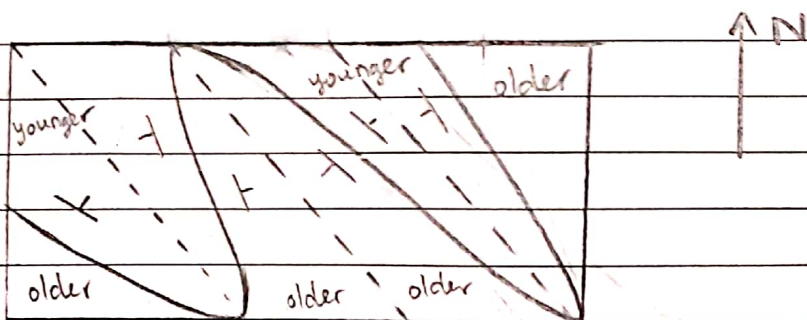 N
younger
older
younger
older
older
older